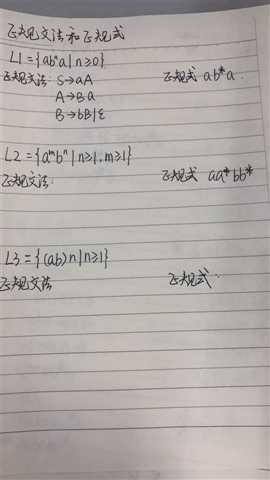 正规文法和正规式
L1 = {abⁿa | n≥0}
正规文法: S→aA 正规式 ab*a.
A→Ba
B→bB|ε
L2 = {aᵐbⁿ | n≥1, m≥1}
正规文法: 正规式 aa*bb*
L3 = {(ab)n | n≥1}
正规文法 正规式.